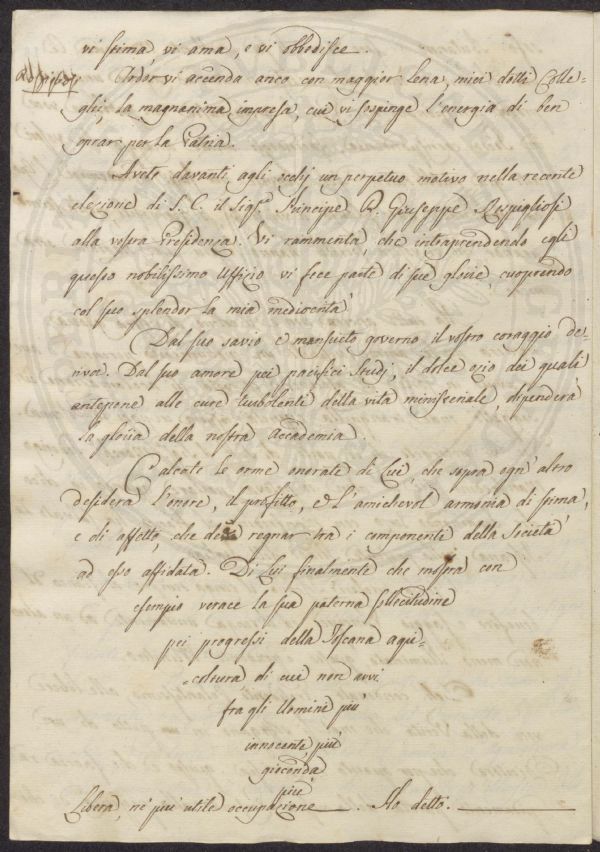 vi stima, vi ama, e vi obbedisce.
Ardor vi accenda anco con maggior lena, miei dotti Colle-
ghi, la magnanima impresa, cui vi sospinge l'energia di ben
oprar per la Patria.
Avete davanti agli occhj un perpetuo motivo nella recente
elezione di S. E. il Sigr. Principe D. Giuseppe Rospigliosi
alla vostra Presidenza. Vi rammenta, che intraprendendo egli
questo nobilissimo Uffizio vi fece parte di sue glorie, cuoprendo
col suo splendor la mia mediocrità
Dal suo savio e mansueto governo il vostro coraggio de-
riva. Dal suo amore pei pacifici Studj, il dolce ozio dei quali
antepone alle cure turbolente della vita ministeriale, dipenderà
la gloria della nostra Accademia.
Calcate le orme onorate di Lui, che sopra ogn'altro
desidera l'onore, il profitto, e l'amichevol armonia di stima,
e di affetto, che dee regnar tra i componente della Società
ad esso affidata. Di Lui finalmente che mostra con
esempio verace la sua paterna sollecitudine
pei progressi della Toscana agri-
coltura di cui non avvi
fra gli Uomini più
innocente, più
gioconda
più
libera, nè più utile occupazione. Ho detto.